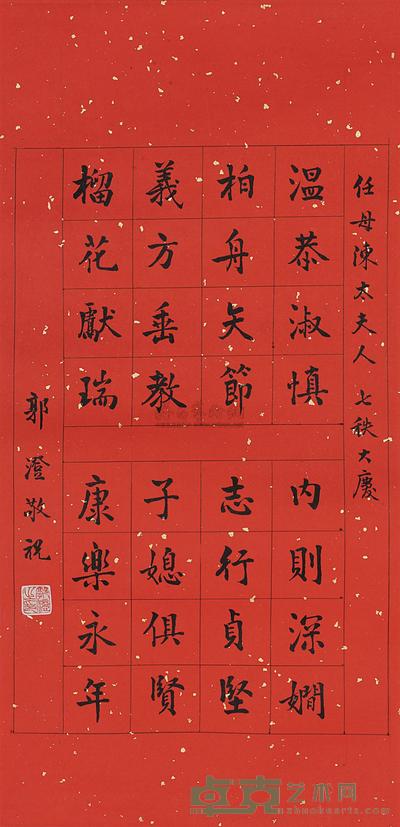 任母陳太夫人七秩大慶
溫恭淑慎
內則深嫺
柏舟矢節
志行貞堅
義方垂教
子媳俱賢
榴花獻瑞
康樂永年
郭澄敬祝
卓克艺术网